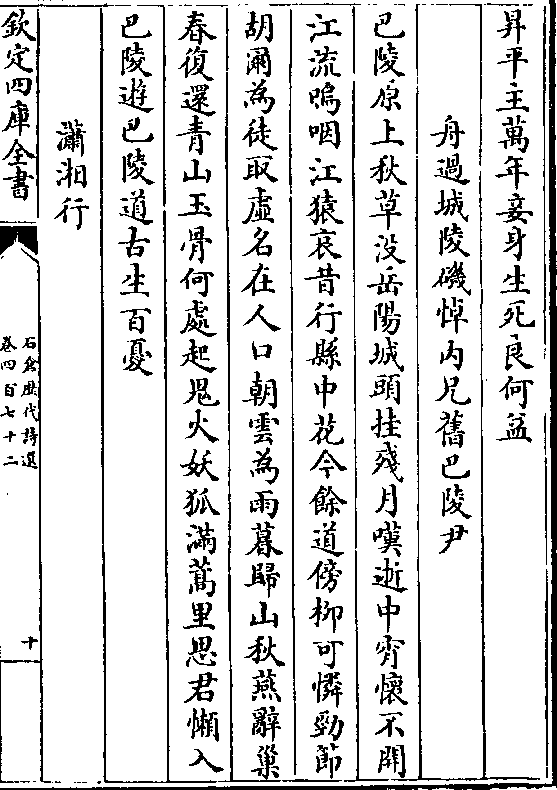 昇平主萬年妾身生死良何益
舟過城陵磯悼内兄舊巴陵尹
巴陵原上秋草没岳陽城頭挂殘月嘆逝中宵懷不開
江流嗚咽江猿哀昔行縣中花今餘道傍栁可憐勁節
胡爾為徒取虛名在人口朝雲為雨暮歸山秋燕辭巢
春復還青山玉骨何處起鬼火妖狐滿蒿里思君懶入
巴陵遊巴陵道古生百憂
瀟湘行
欽定四庫全書
石倉歴代詩選
卷四百七十二
十